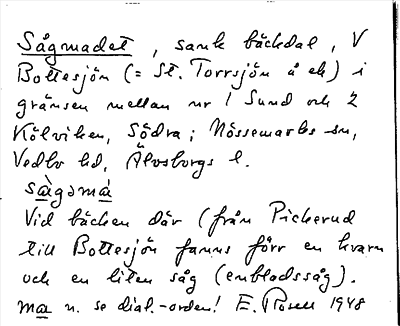 Sågmadet, sank bäckdal, V
Bottesjön (= St. Torrsjön å ek) i
gränsen mellan nr 1 Sund och 2
Kölviken, Södra; Nössemarks sn,
Vedbo hd, Älvsborgs l.
sågəmà
Vid bäcken där (från Pickerud
till Bottesjön fanns förr en kvarn
och en liten såg (enbladssåg).
ma n. se dial.-orden! E. Rosell 1948